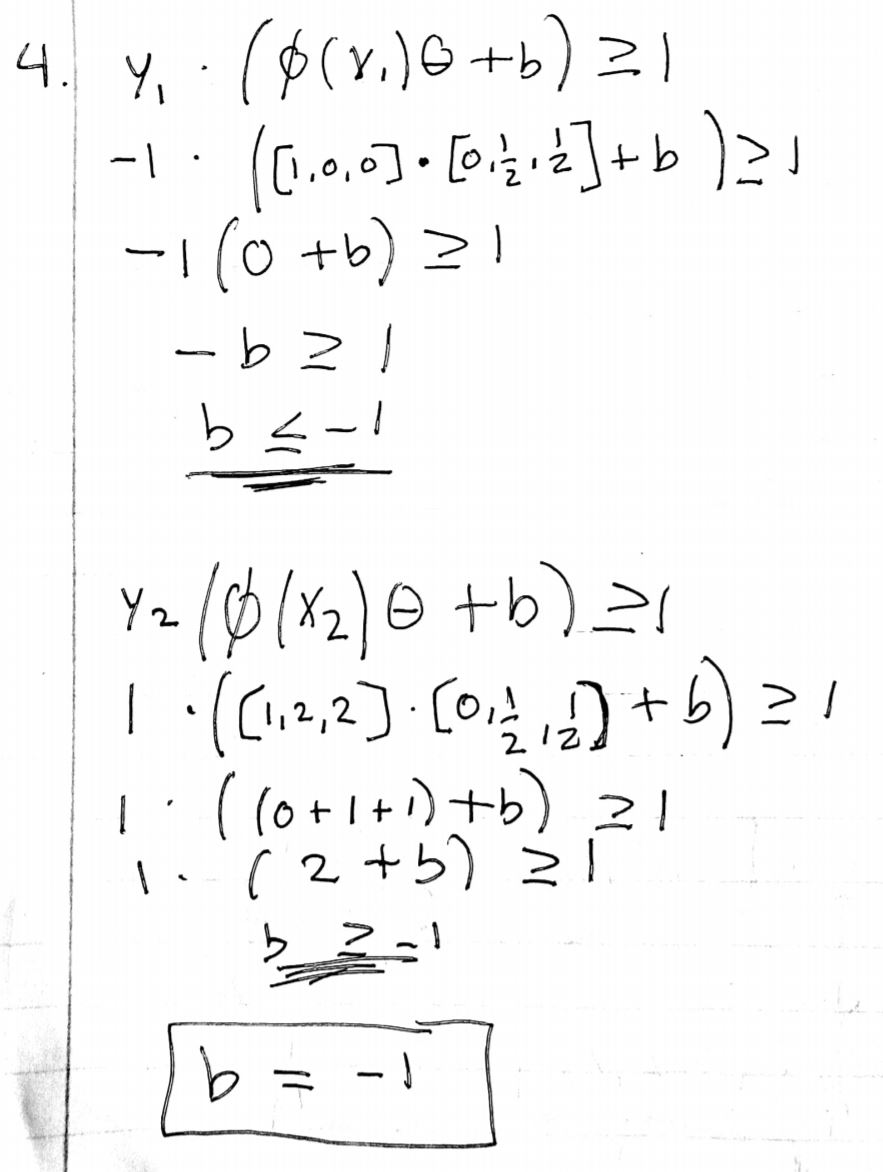 4. y₁ · (ϕ(x₁)θ + b) ≥ 1
-1 · ([1,0,0] • [0,½,½] + b) ≥ 1
-1(0 + b) ≥ 1
- b ≥ 1
b ≤ -1
y₂(ϕ(x₂)θ + b) ≥ 1
1 · ([1,2,2] · [0,½,½] + b) ≥ 1
1 · ((0+1+1)+b) ≥ 1
1 · (2 + b) ≥ 1
b ≥ -1
b = -1